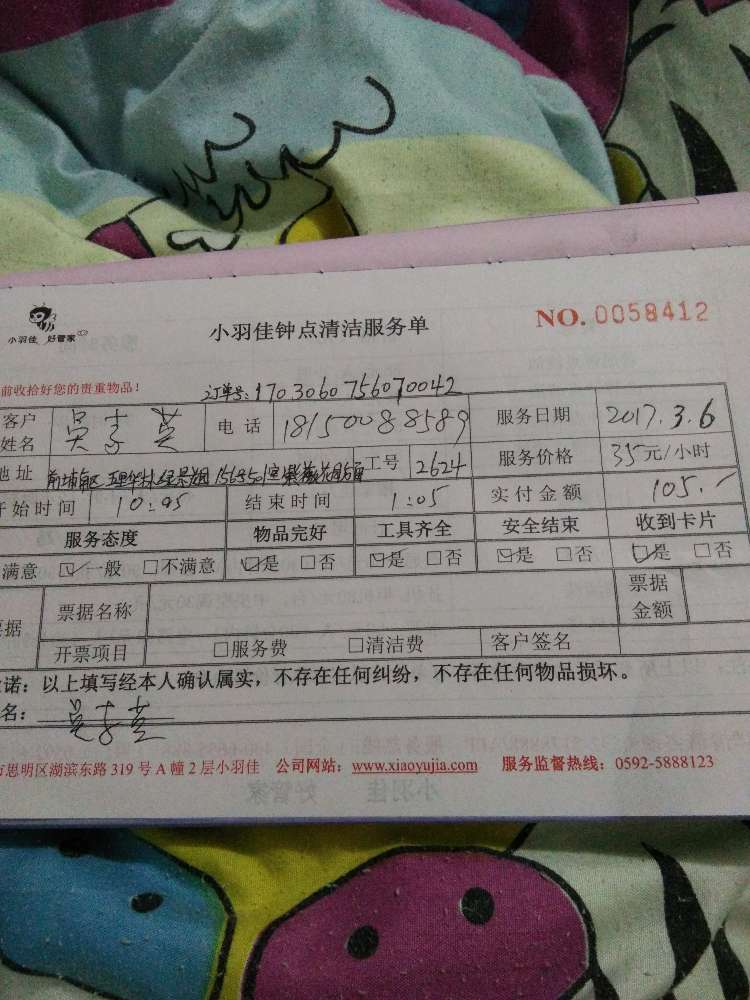 小羽佳 好管家
小羽佳钟点清洁服务单
NO. 0058412
前收拾好您的贵重物品！
订单号: 170306075607 0042
客户姓名 吴 电话 18150088589 服务日期 2017.3.6
地址 工号 2624 服务价格 35元/小时
开始时间 10:05 结束时间 1:05 实付金额 105.
服务态度 物品完好 工具齐全 安全结束 收到卡片
满意 ☑一般 □不满意 ☑是 □否 ☑是 □否 ☑是 □否 ☑是 □否
据 票据名称 票据金额
开票项目 □服务费 □清洁费 客户签名
诺：以上填写经本人确认属实，不存在任何纠纷，不存在任何物品损坏。
名： 吴
市思明区湖滨东路 319 号 A 幢 2 层小羽佳 公司网站：www.xiaoyujia.com 服务监督热线：0592-5888123